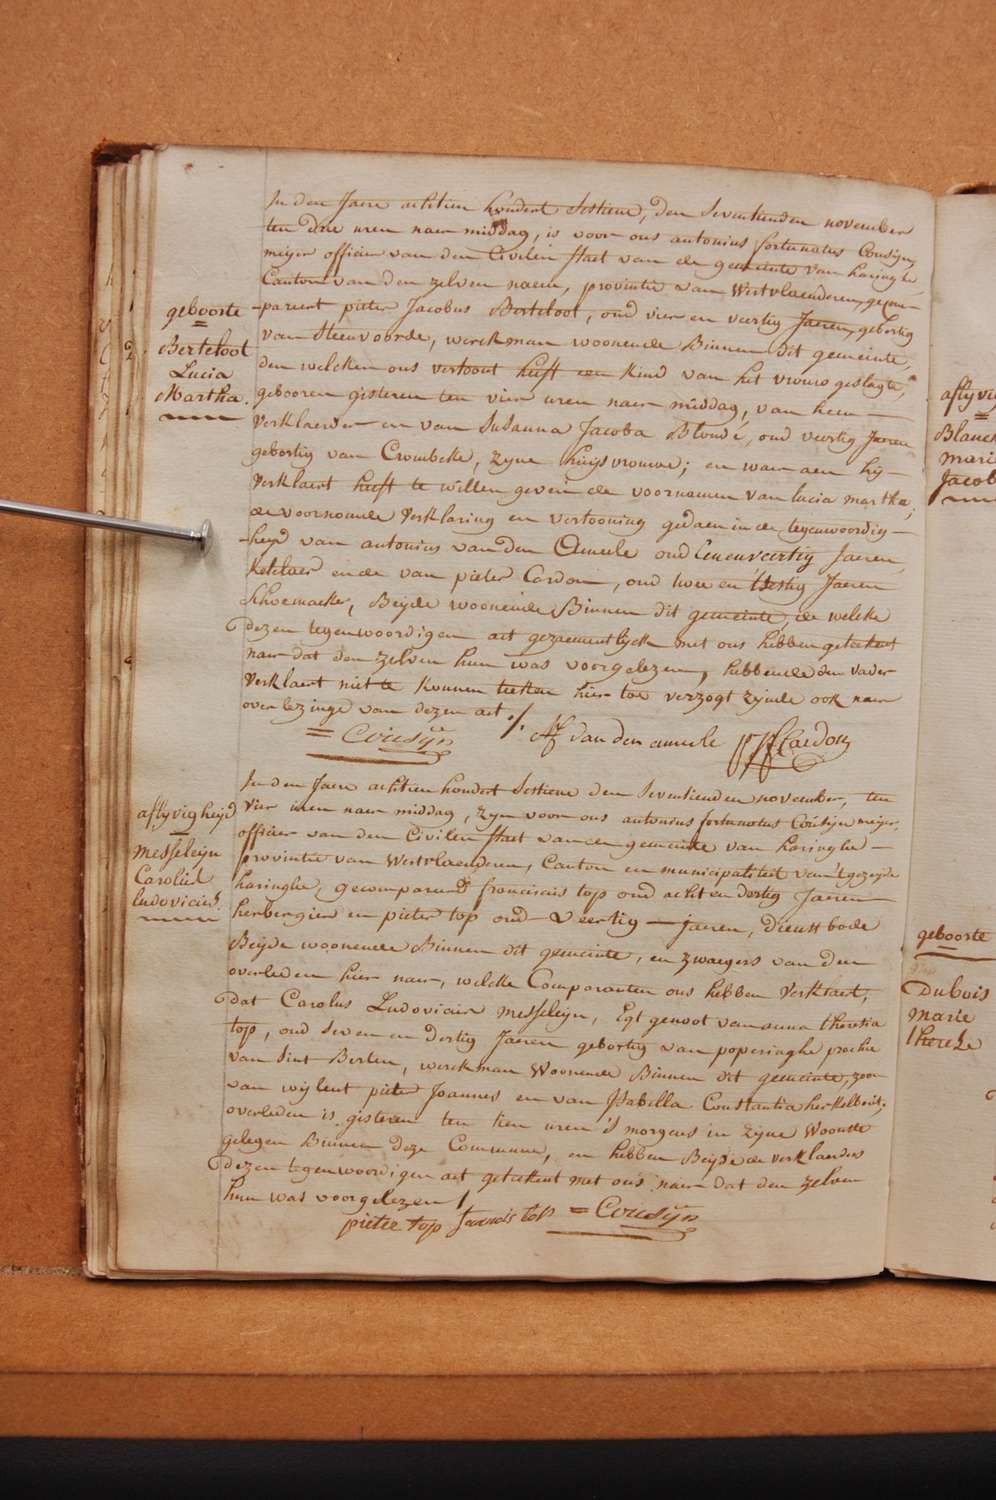 In den Jaere achtien hondert sestiene, den seventienden november
ten drie uren naer middag, is voor ons antonius fortunatus Cousijn,
meijer officier van den Civilen staet van de gemeinte van haringhe
Canton van den zelven naem, provintie van Westvlaenderen, gecom-
geboorte
=
Berteloot
Lucia
Martha.
pareert pieter Jacobus Berteloot, oud vier en veertig Jaeren, gebortig
van Steenvoorde, werckman woonende Binnen dit gemeinte,
den welcken ons vertoont heeft een kind van het vrouw geslagte,
gebooren gisteren ten vier uren naer middag, van hem
verklaerder en van Susanna Jacoba Blondé, oud veertig Jaeren
gebortig van Crombeke, zijne huijsvrouwe; en waer aen hij
verklaert heeft te willen geven de voornamen van lucia martha;
de voornoemde verklaring en vertooning gedaen in de tegenwoordig-
heyd van antonius van den Ameele oud Eenenveertig Jaeren,
ketelaer ende van pieter Cordon, oud twee en tsestig Jaeren
schoemaeker, Beijde woonende Binnen dit gemeinte, de welcke
dezen tegenwoordigen act gezaementlyck met ons hebben geteekent
naer dat den zelven hun was voorgelezen, hebbende den vader
verklaert niet te konnen teeken hier toe verzogt zijnde ook naer
over lezinge van dezen act ./.
= Cousijn
AF van den ameele
PJF Cardon
In den Jaere achtien hondert sestiene den seventienden november, ten
aflyvigheijd
=
Messeleijn
Caroliel
ludovicus.
vier uren naer middag, zijn voor ons antonius fortunatus Cousijn meijer,
officier van den Civilen staet van de gemeinte van haringhe
provintie van Westvlaenderen, Canton en municipaliteit van 't gezeijde
haringhe, gecompareerd franciscus top oud acht en dertig Jaeren
herbergier en pieter top oud veertig jaeren, dienstbode
Beijde woonende Binnen dit gemeinte, en zwaegers van den
overleden hier naer, welcke Comparanten ons hebben verklaert,
dat Carolus Ludovicus Messeleijn, Egt genoot van anna theresia
top, oud seven en dertig Jaeren gebortig van poperinghe prochie
van Sint Berten, werckman Woonende Binnen dit gemeinte, zoon
van wijlent pieter Joannes en van Isabella Constantia herkelbout;
overleden is gisteren ten tien uren 's morgens in zijne Woonste
gelegen Binnen deze Commune, en hebben Beijde de verklaerders
dezen tegenwoordigen act geteekent met ons naer dat den zelven
hun was voorgelezen /.
pieter top francis top = Cousijn
aflyvig
=
Blanc
Mari
Jacob
geboorte
Dubois
Marie
therese